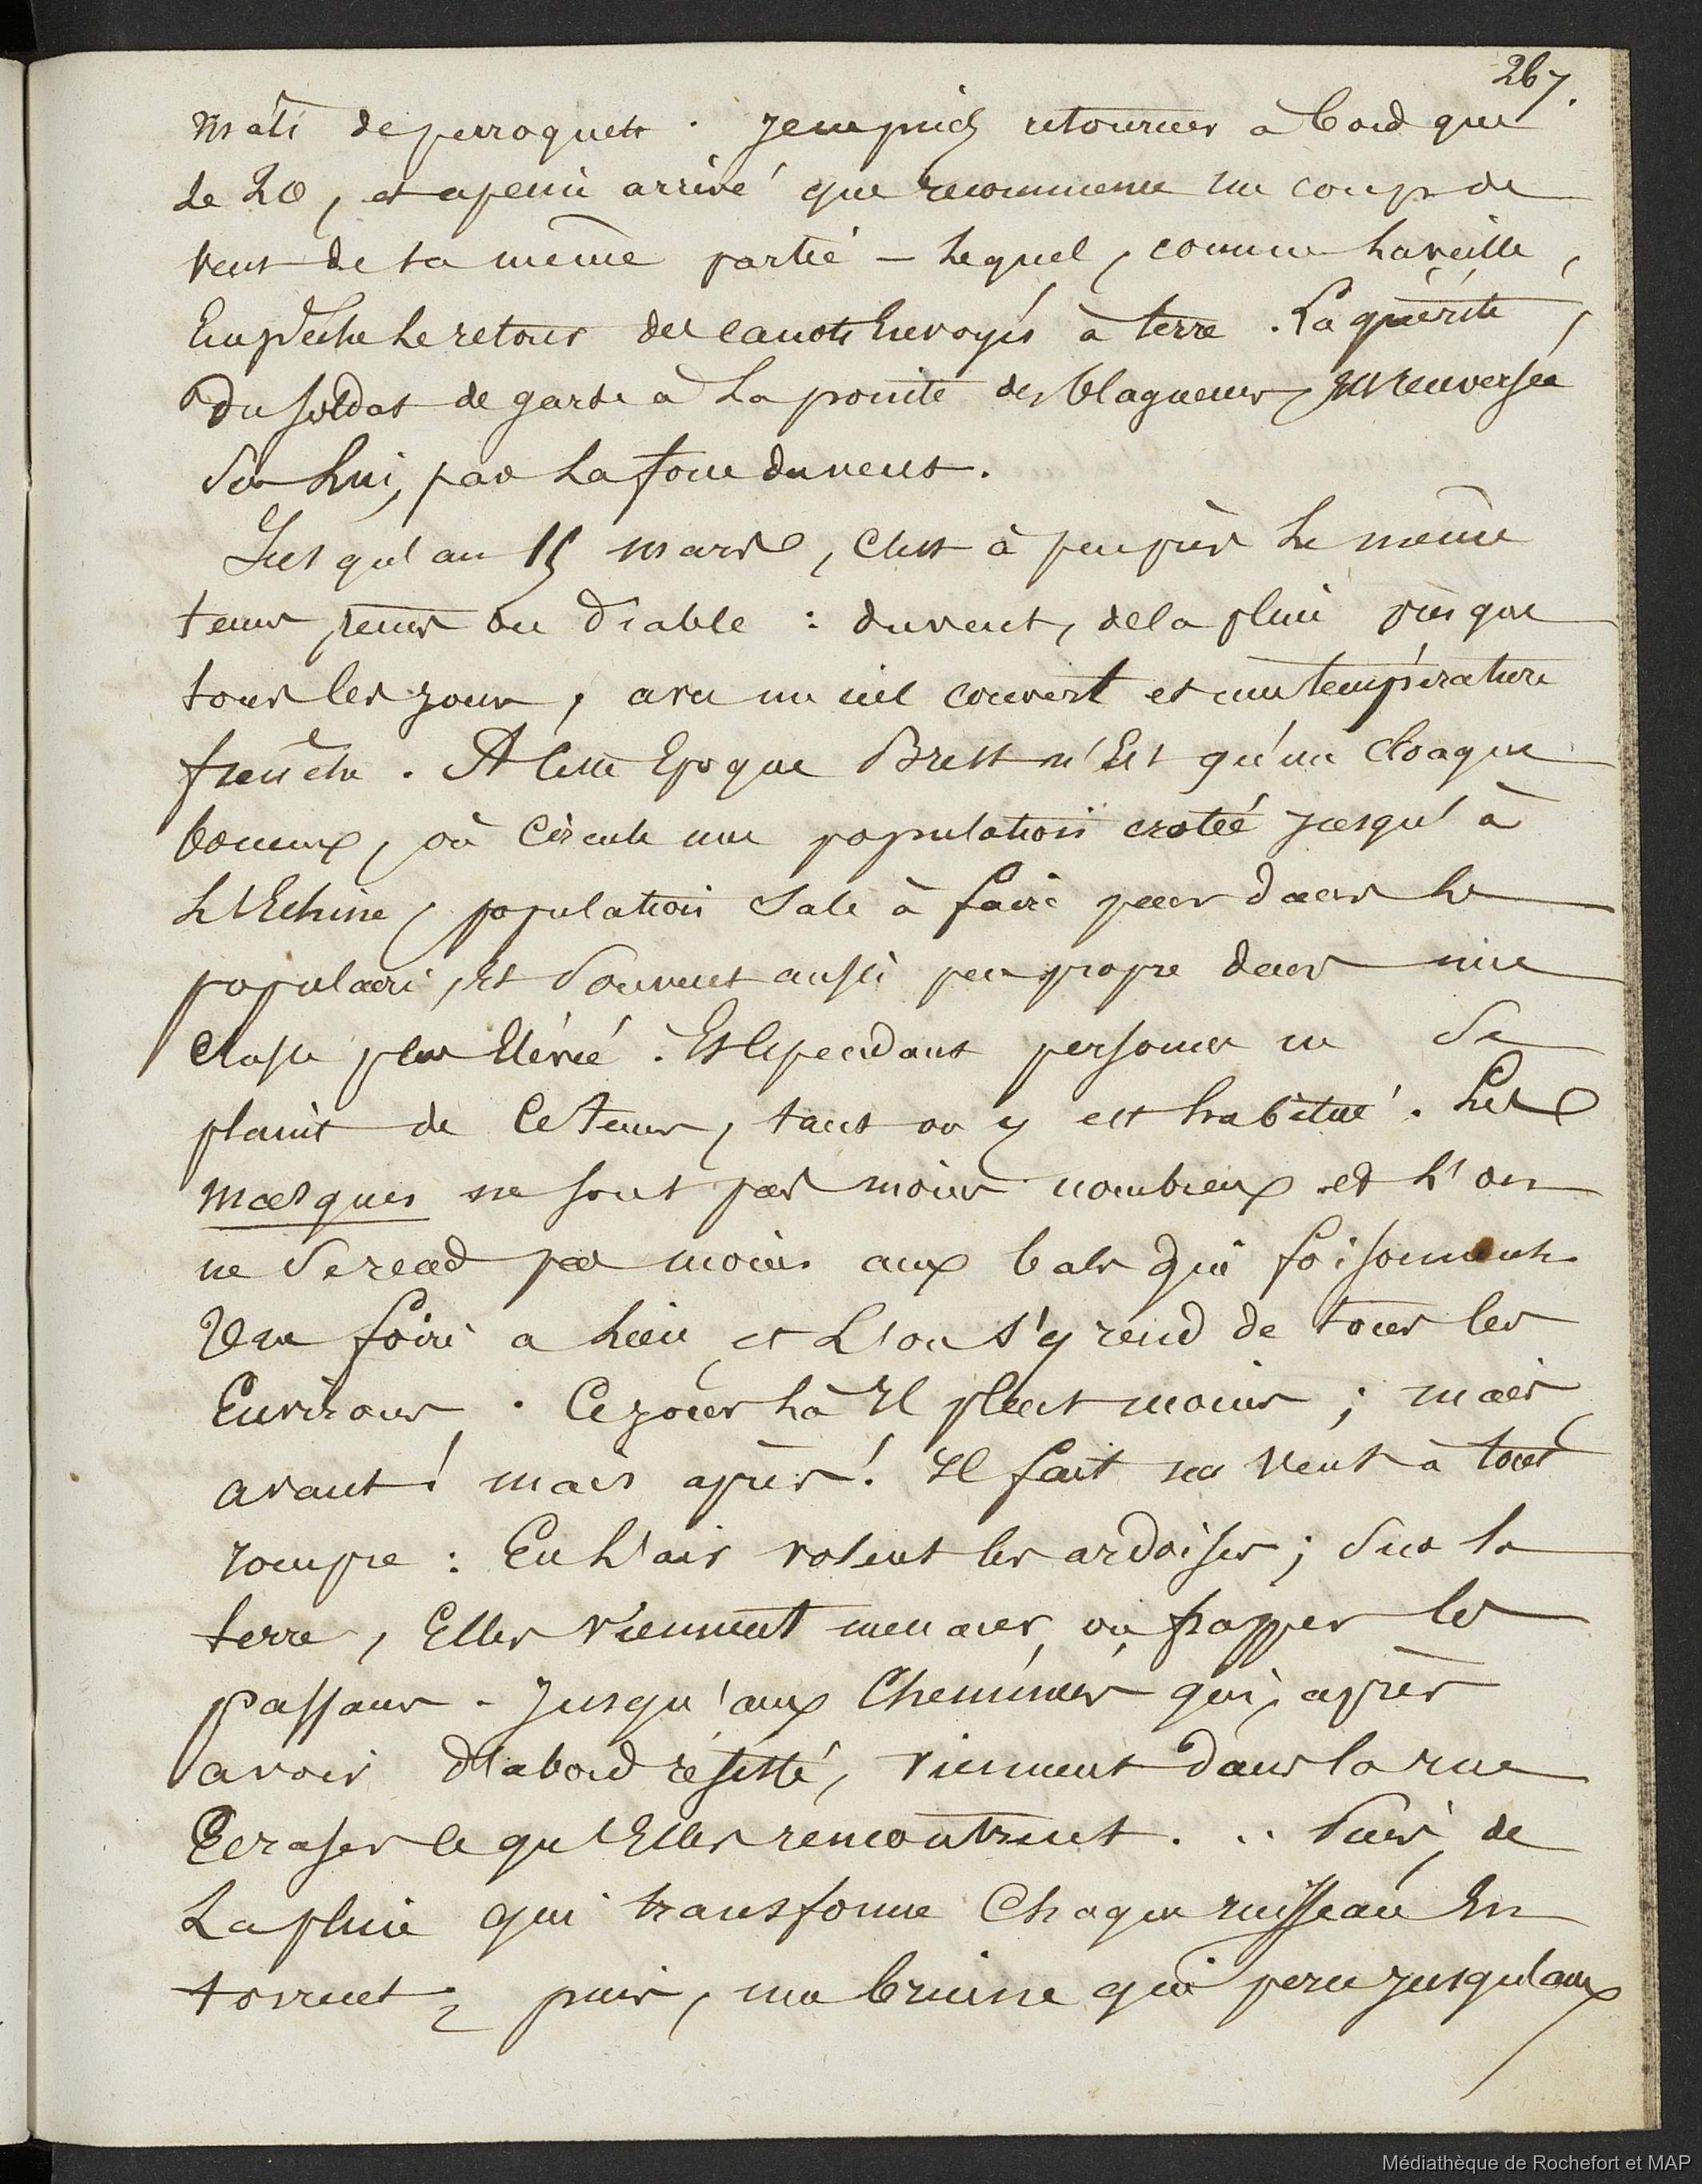 267.
mâts de perroquets. Je ne puis retourner à bord que
le 20, et à peine arrivé que recommence un coup de
vent de la même partie – lequel, comme la veille,
Empêche le retour des canots Envoyés à terre. La guérite,
du soldat de garde à la pointe des blagueurs, est renversée
sur lui, par la force du vent.
Jusqu'au 15 mars, c'est à peu près le même
tems, tems du diable : du vent, de la pluie presque
tous les jours, avec un ciel couvert et une température
fraîche. A cette Epoque Brest n'Est qu'un cloaque
boueux, où circule une population crotée jusqu'à
l'Echine, population sale à faire peur dans le
populaire, Et souvent aussi peu propre dans une
classe plus Elevée. Et cependant personne ne se
plaint de ce tems, tant on y est habitué. Les
masques ne sont pas moins nombreux et l'on
ne se rend pas moins aux bals qui foisonnent
Une foire a lieu et l'on s'y rend de tous les
Environs. Ce jour là Il pleut moins ; mais
avant ! mais après ! Il fait un vent à tout
rompre : En l'air volent les ardoises ; sur la
terre, Elles viennent menacer ou frapper les
passans. Jusqu'aux Cheminées qui, après
avoir d'abord résisté, viennent dans la rue
Ecraser ce qu'Elles rencontrent... Puis, de
La pluie qui transforme Chaque ruisseau En
torrent ; puis, une bruine qui perce jusqu'aux
Médiathèque de Rochefort et MAP